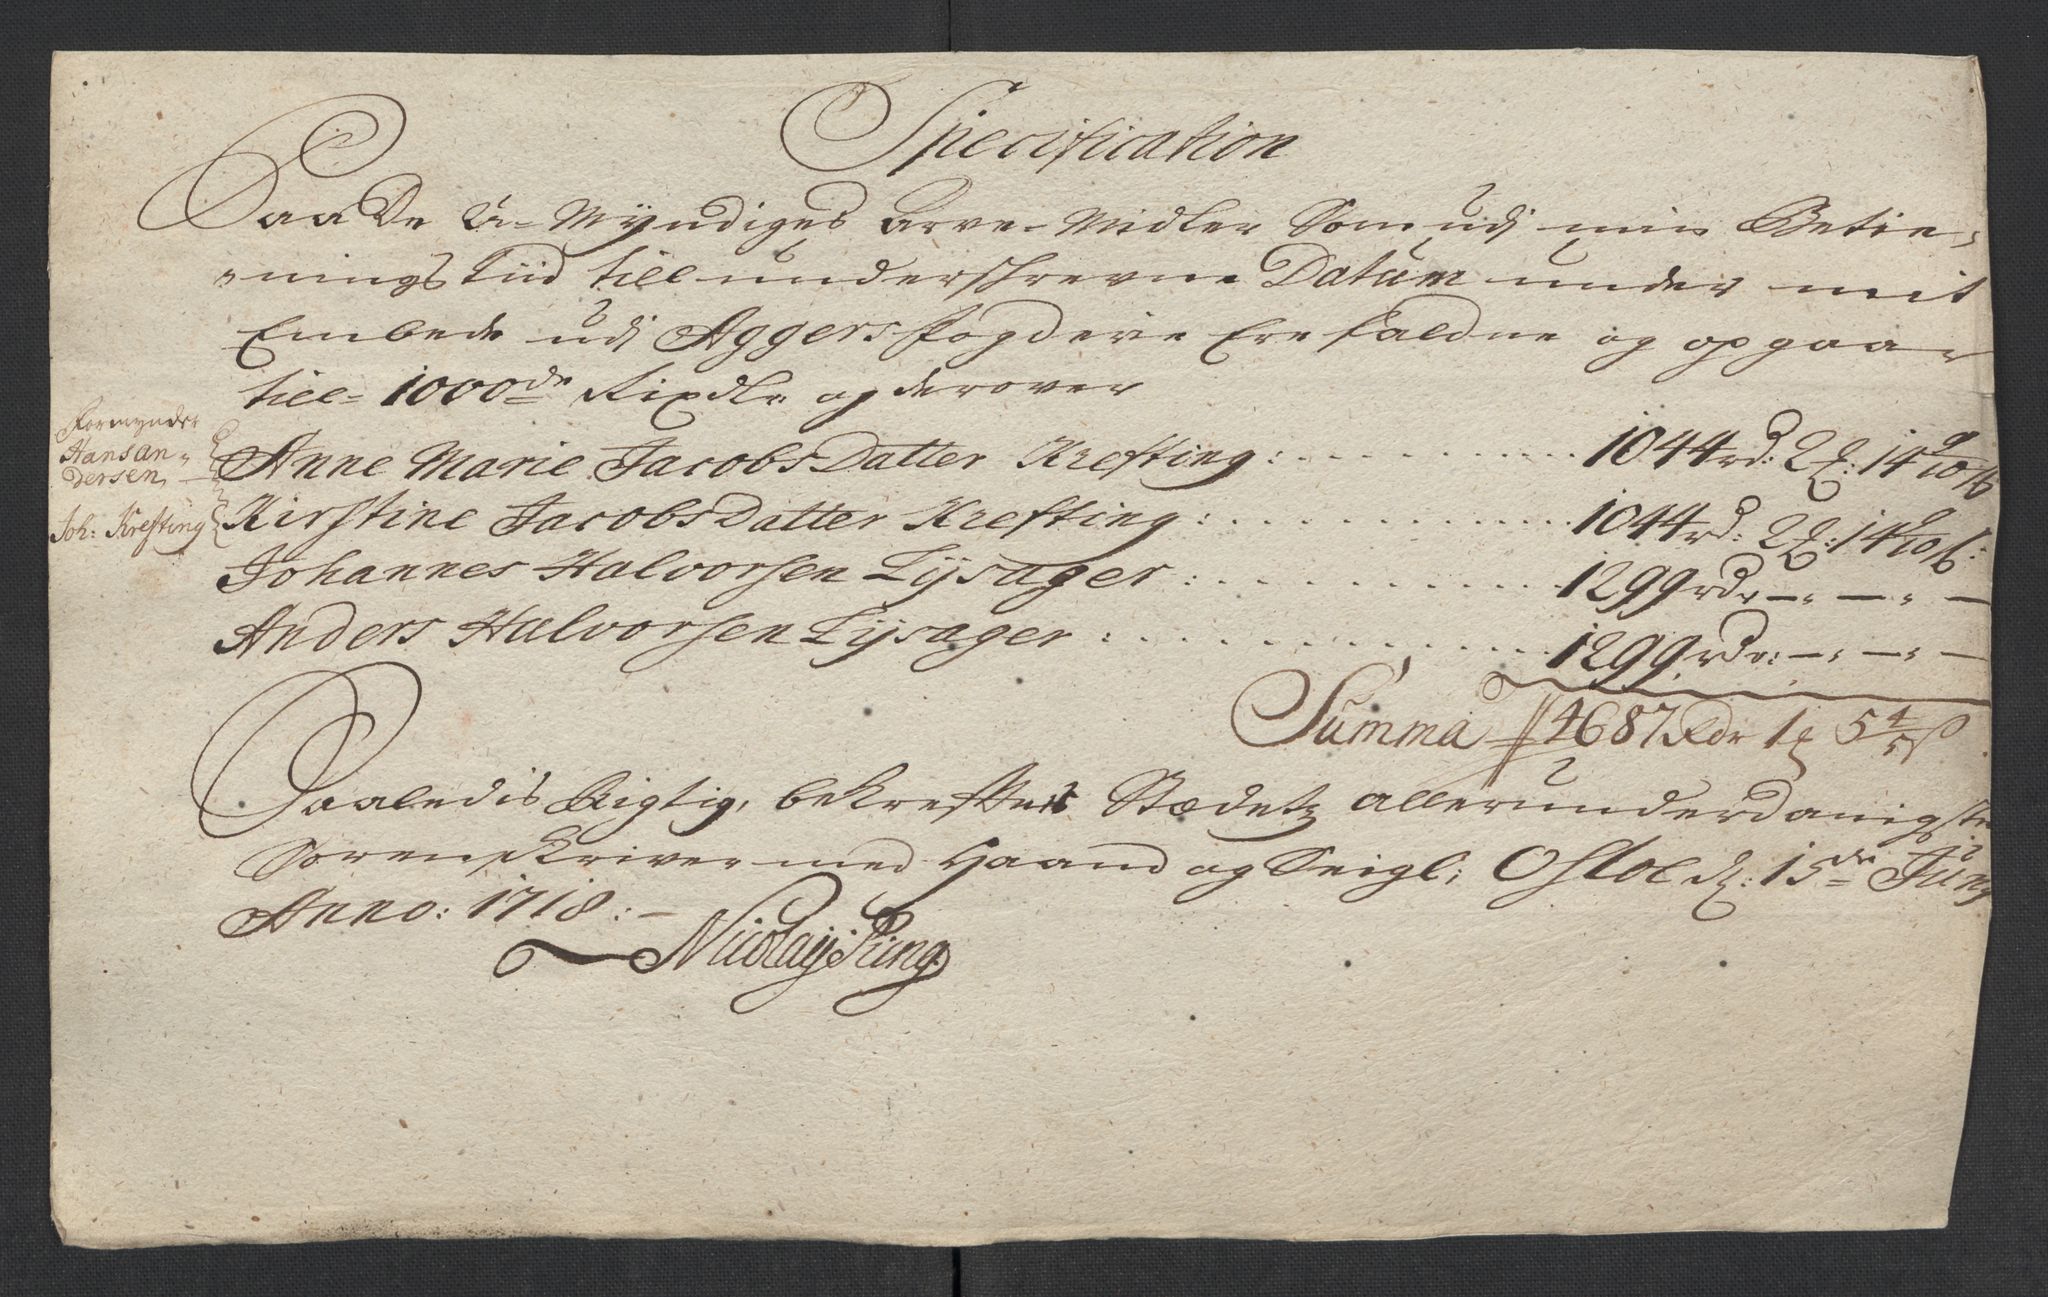 Specification
Paa De U-Myndiges Arve-Midler Som udj min Betie-
nings Tiid till underschrevne Datum under mit
Embede udj Aggers Fogderie Ere faldne og opgaar
till 1000de Rixdlr og derover
Formynder
Hans An-
dersen,
Joh: Krefting
Anne Marie Jacobs Datter Krefting: 1044 rd: 2 ℔: 14 9/10 ß
Kirstine Jacobs Datter Krefting: 1044 rd: 2 ℔: 14 9/10 ß:
Johannes Halvorsen Lysager: 1299 rdr — — —
Anders Halvorsen Lysager: 1299 rdr: — — —
Summa 4687 Rdr 1 ℔ 5 4/5 ß
Saaledis Rigtig, bekrefter Stædetz allerunderdanigste
Sorenskriver med Haand og Seigl; Osloe d: 15de Junj
Anno: 1718:
Nicolaÿ Pung